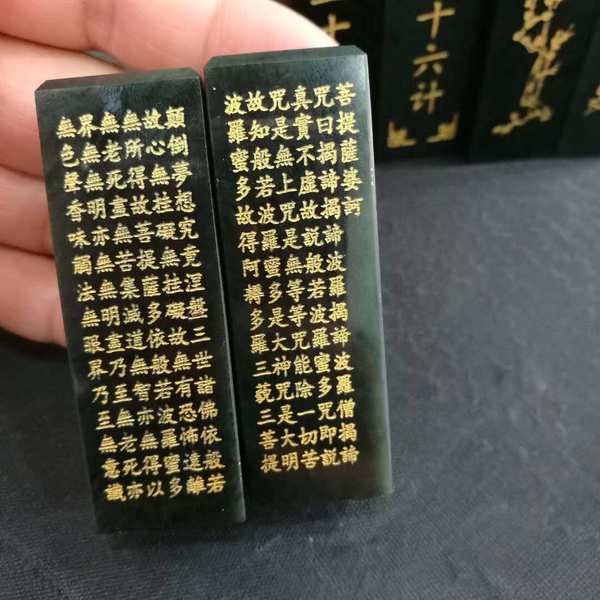 無色聲香味觸法無眼界乃至無意識
界無無明亦無無明盡乃至無老死亦
無老死盡無苦集滅道無智亦無得以
無所得故菩提薩多依般若波羅蜜多
故心無挂礙無挂礙故無有恐怖遠離
顛倒夢想究竟涅盤三世諸佛依般若
波羅蜜多故得阿耨多羅三藐三菩提
故知般若波羅蜜多是大神咒是大明
咒是無上咒是無等等咒能除一切苦
真實不虛故說般若波羅蜜多咒即說
咒曰揭諦揭諦波羅揭諦波羅僧揭諦
菩提薩婆訶
十六计